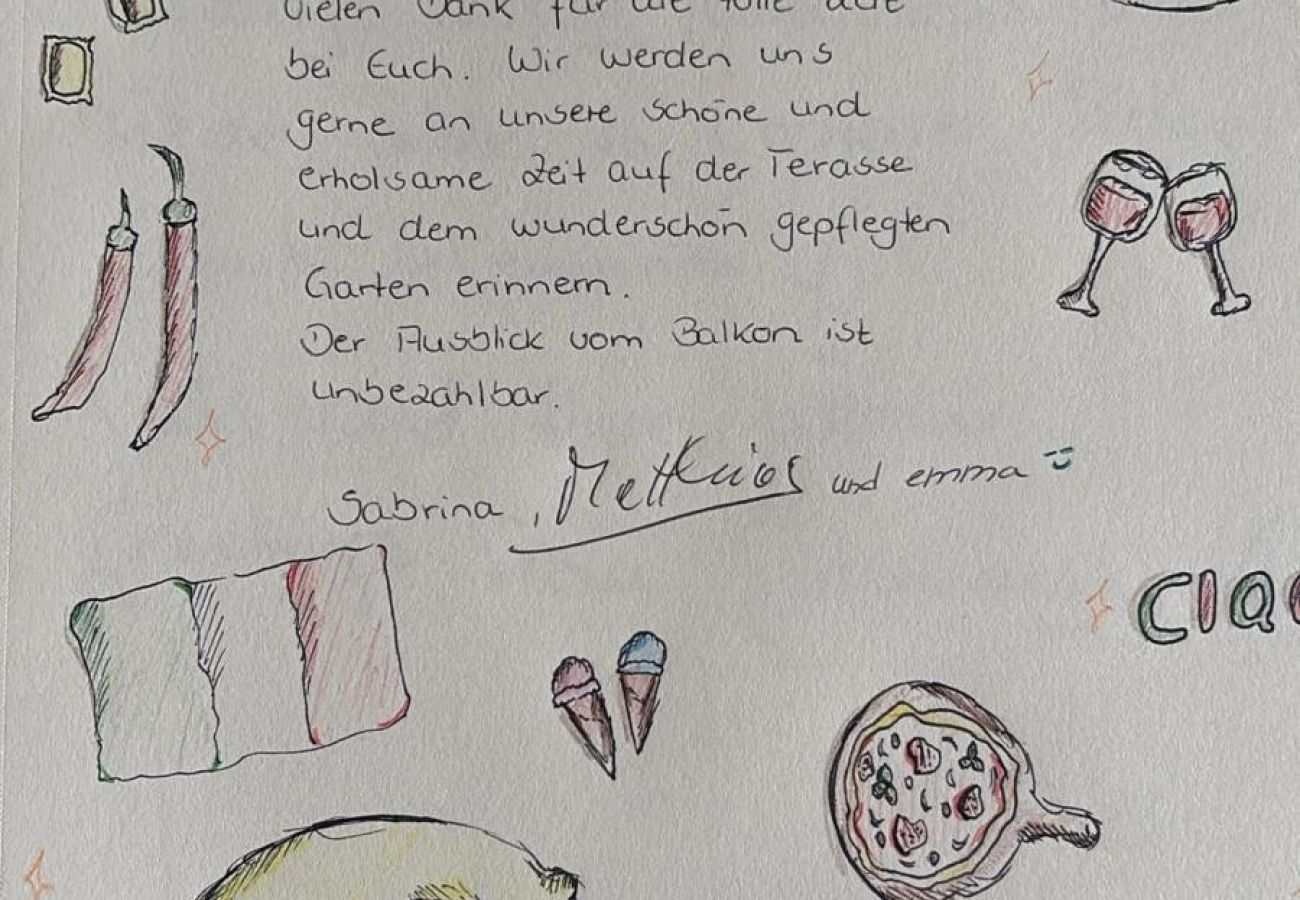 Vielen Dank für die tolle
bei Euch. Wir werden uns
gerne an unsere schöne und
erholsame Zeit auf der Terasse
und dem wunderschön gepflegten
Garten erinnern.
Der Ausblick vom Balkon ist
unbezahlbar.
Sabrina, und emma
CIAO